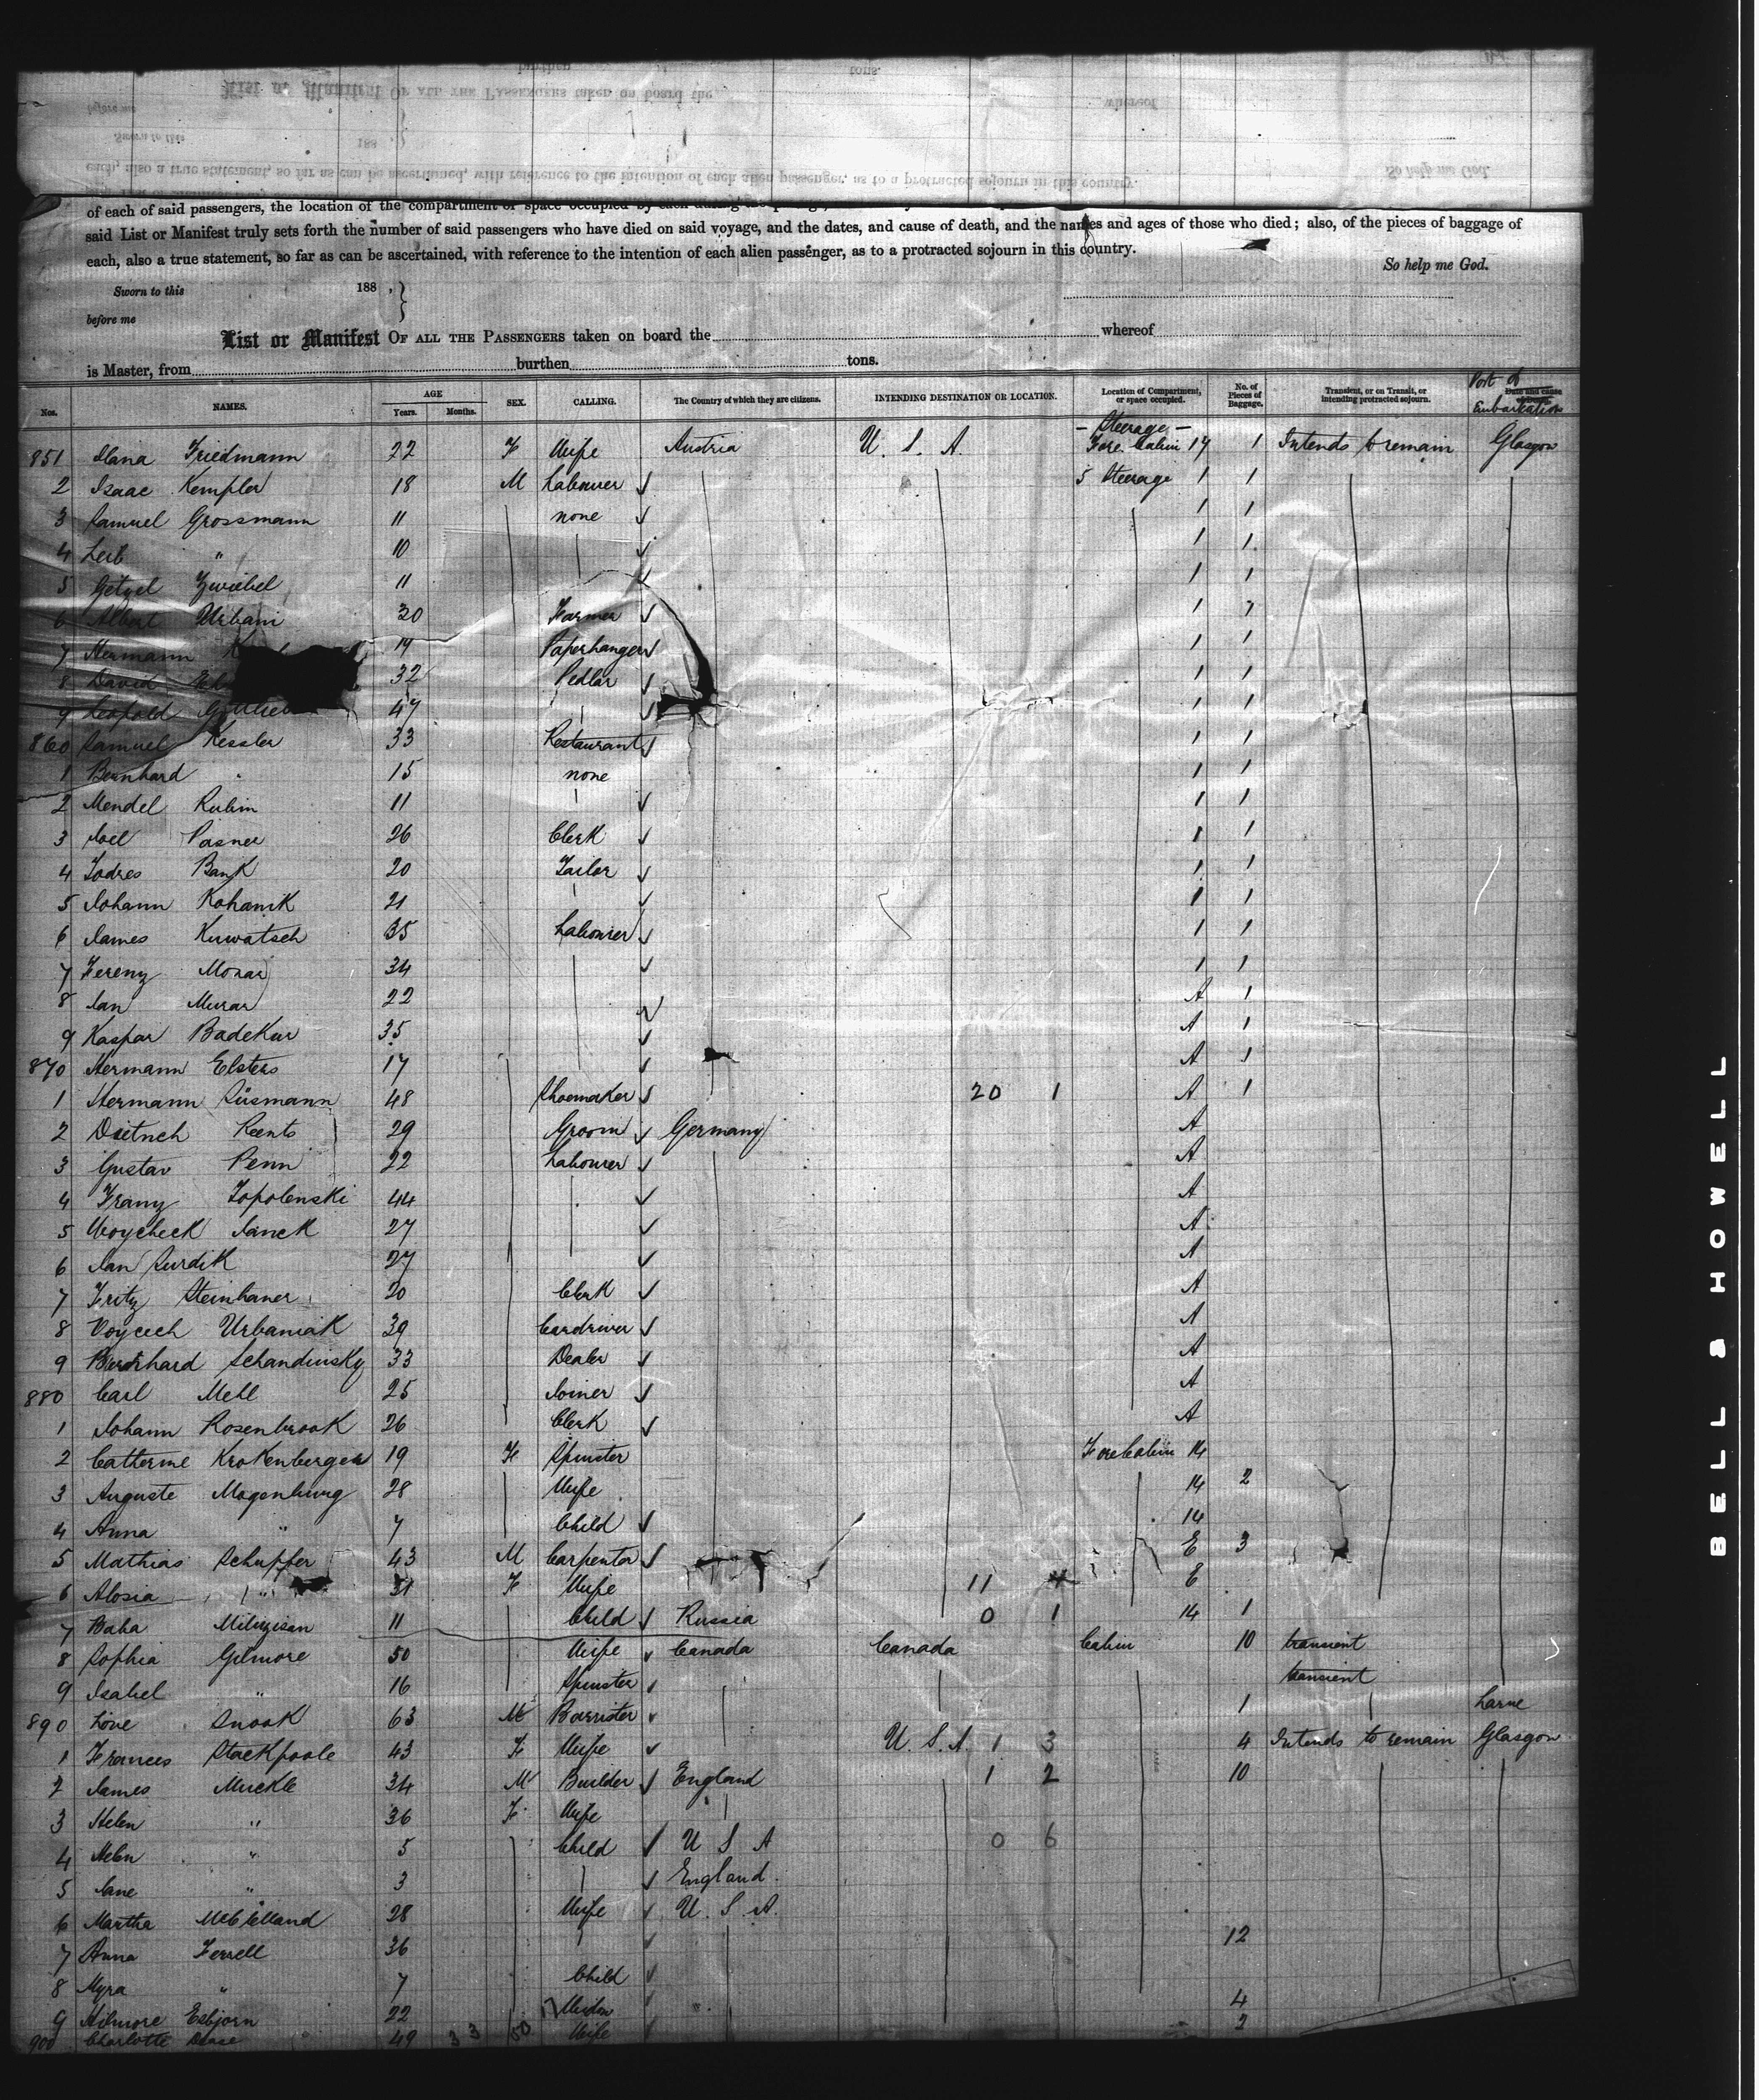 of each of said passengers, the location of the compartment or space occupied by each during
said List or Manifest truly sets forth the number of said passengers who have died on said voyage, and the dates, and cause of death, and the names and ages of those who died; also, of the pieces of baggage of
each, also a true statement, so far as can be ascertained, with reference to the intention of each alien passenger, as to a protracted sojourn in this country.
So help me God.
Sworn to this 188 .
before me
List or Manifest OF ALL THE PASSENGERS taken on board the whereof
is Master, from burthen tons.
Nos. NAMES. AGE Years. Months. SEX. CALLING. The Country of which they are citizens. INTENDING DESTINATION OR LOCATION. Location of Compartment, or space occupied. No. of Pieces of Baggage. Transient, or on Transit, or intending protracted sojourn. Port of Embarkation
- Steerage -
851 Friedmann 22 F Wife Austria U. S. A. Fore Cabin 17 1 Intends to remain Glasgow
2 Isaac Kempler 18 M Labourer 5 Steerage 1 1
3 Samuel Grossmann 11 none 1 1
4 Leib " 10 1 1
5 Getzel Zwiebel 11 1 1
6 Albert Urbani 30 Farmer 1 1
7 Hermann 19 Paperhanger 1 1
8 David 32 Pedlar 1 1
9 Leopold Gottlieb 47 1 1
860 Samuel Kessler 33 Restaurant 1 1
1 Bernhard " 15 none 1 1
2 Mendel Rubin 11 1 1
3 Joel Pasner 26 Clerk 1 1
4 Todres Bank 20 Tailor 1 1
5 Johann Kohanik 21 1 1
6 James Kuwatsch 35 Labourer 1 1
7 Ferenz Mozar 34 1 1
8 Jan Murar 22 A 1
9 Kaspar Badekar 35 A 1
870 Hermann Elsters 17 A 1
1 Hermann Süsmann 48 Shoemaker 20 1 A 1
2 Dietrich Reents 29 Groom Germany A
3 Gustav Penn 22 Labourer A
4 Franz Topolenski 44 A
5 Woycheck Janek 27 A
6 Jan Surdik 27 A
7 Fritz Steinhaner 20 Clerk A
8 Voycech Urbaniak 39 Cardriver A
9 Bernhard Schandinsky 33 Dealer A
880 Carl Mehl 25 Joiner A
1 Johann Rosenbrook 26 Clerk A
2 Catherine Krokenberger 19 F Spinster Fore Cabin 14
3 Auguste Magenburg 28 Wife 14 2
4 Anna " 7 Child 14
5 Mathias Schupfer 43 M Carpenter E 3
6 Alosia " 31 F Wife 11 4 E
7 Baba 11 Child Russia 0 1 14 1
8 Sophia Gilmore 50 Wife Canada Canada Cabin 10 transient
9 Isabel " 16 Spinster transient
890 Snook 63 M Barrister 1 Larne
1 Frances Stackpoole 43 F Wife U. S. A. 1 3 4 Intends to remain Glasgow
2 James Muckle 34 M Builder England 1 2 10
3 Helen " 36 F Wife
4 Helen " 5 Child U S A 0 6
5 Jane " 3 England
6 Martha McClelland 28 Wife U. S. A.
7 Anna Ferrell 36 12
8 Myra " 7 Child
9 Esbjorn 22 17 " 4
900 Charlotte 49 33 Wife 2
BELL & HOWELL